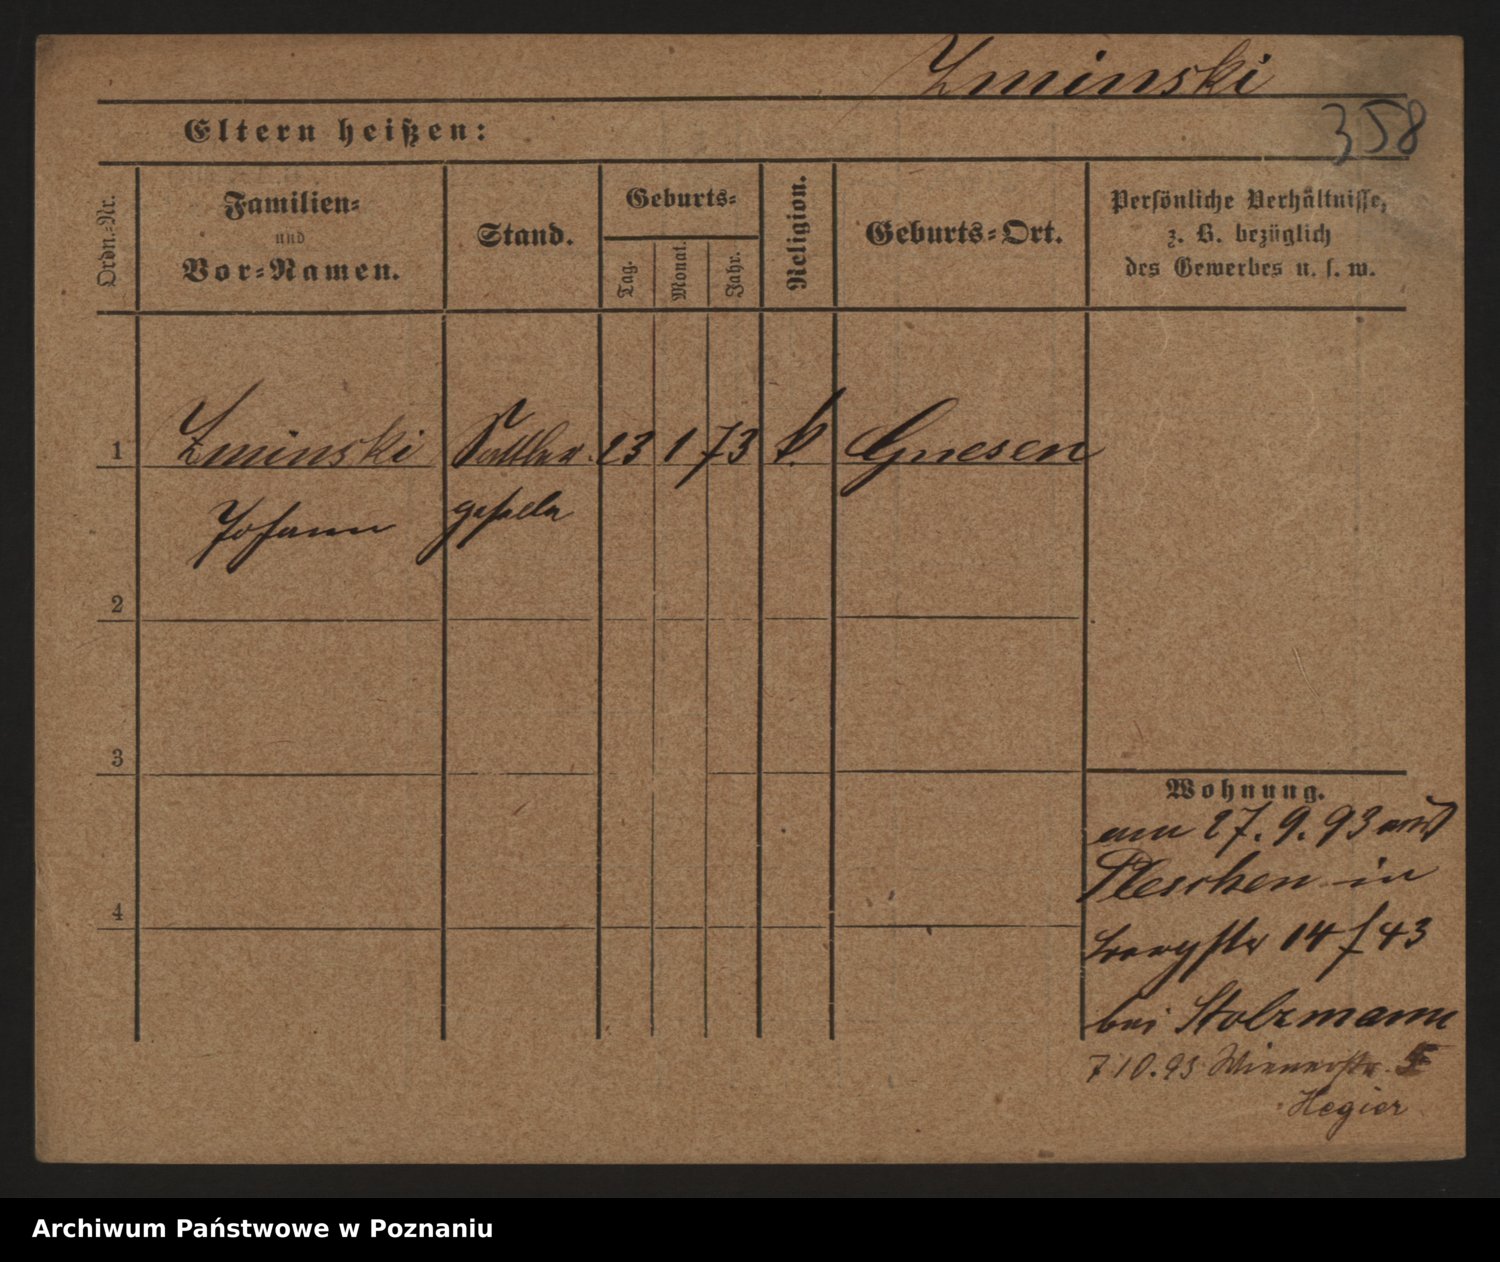 Zminski
358
Eltern heißen:
Ordn.-Nr.
Familien-
und
Vor-Namen.
Stand.
Geburts-
Tag.
Monat.
Jahr.
Religion.
Geburts-Ort.
Persönliche Verhältnisse,
z. B. bezüglich
des Gewerbes u. s. w.
1 Zminski Sattler 23 1 73 k. Gnesen
Johann geselle
2
3
Wohnung.
am 27. 9. 93 aus
Pleschen in
4
14/43
bei Stolzmann
7 10. 93 Wienerstr. 5
Hegier
Archiwum Państwowe w Poznaniu